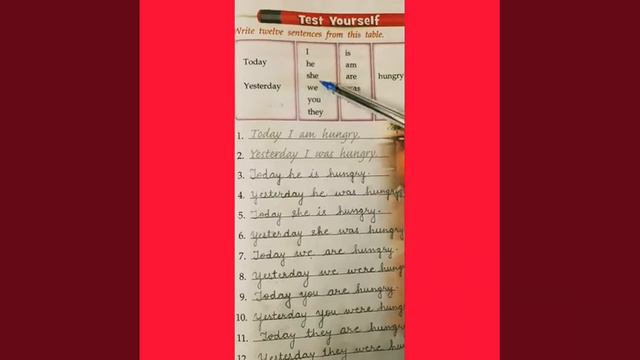 Test Yourself
Write twelve sentences from this table.
I is
Today he am
she are hungry
Yesterday we was
you
they
1. Today I am hungry.
2. Yesterday I was hungry.
3. Today he is hungry.
4. Yesterday he was hungry
5. Today she is hungry.
6. Yesterday she was hungry
7. Today we are hungry.
8. Yesterday we were hung
9. Today you are hungry.
10. Yesterday you were hung
11. Today they are hungry
12. Yesterday they were hu